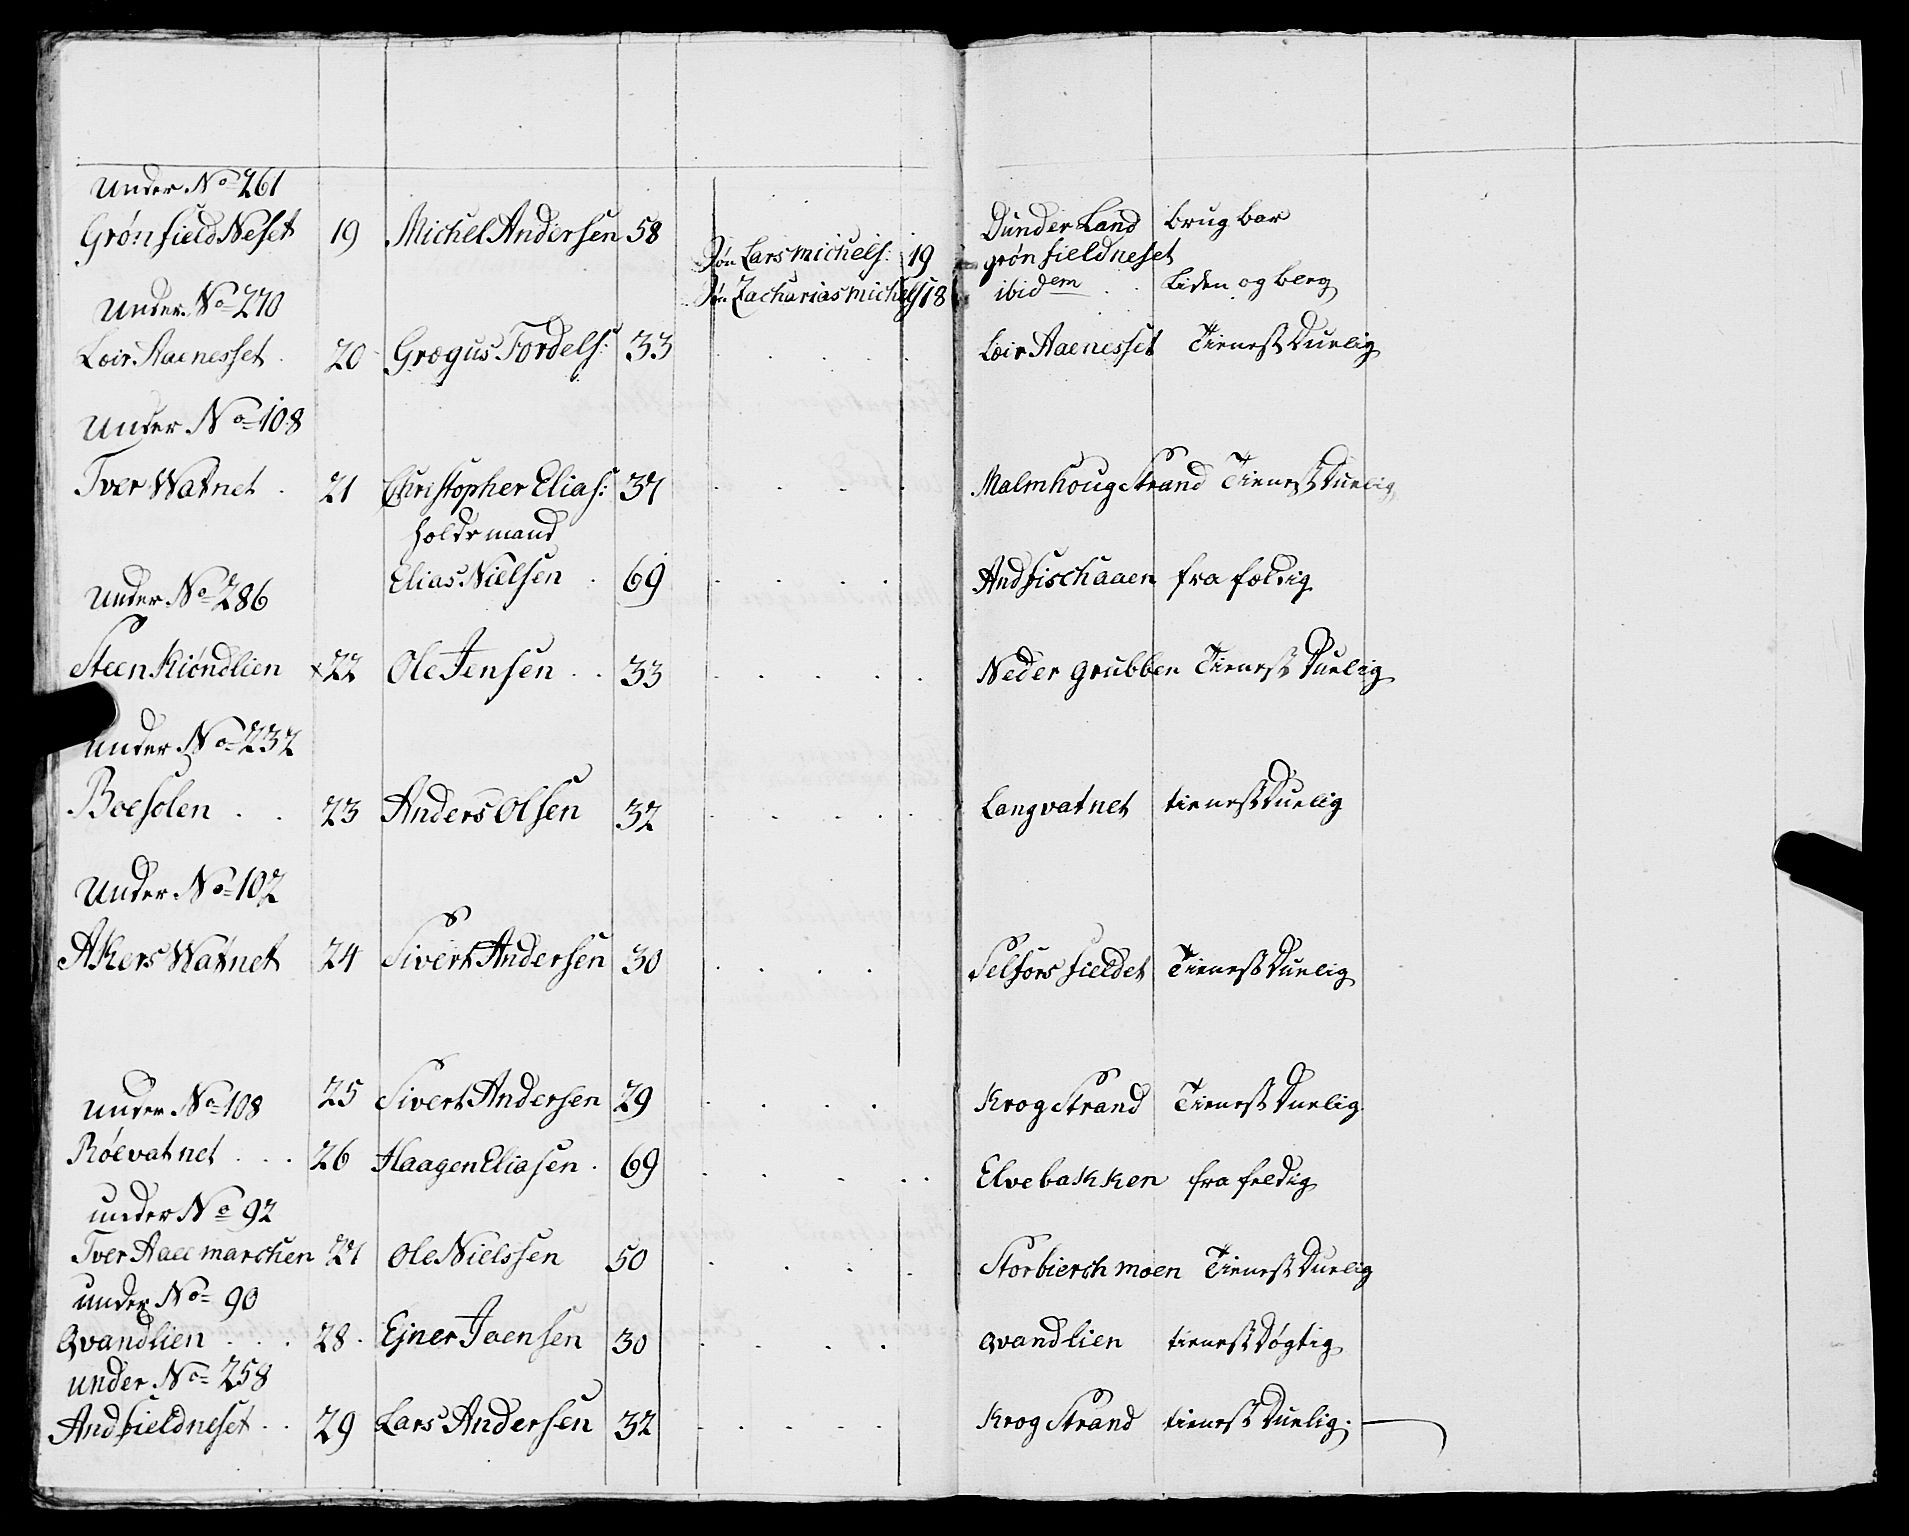 Under No 261
Grønfield Neset 19 Michel Andersen 58 Dunder Land brug bar
Søn Lars michels: 19 grønfieldneset
Søn Zacharias michels 18 ibidem . . Liden og berg
Under No 270
Loir Aaenesset . 20 Grægus Tordels: 33 . . . . Loir Aaenesset Tienest Duelig
Under No 108
Tver Watnet . 21 Christopher Elias: 37 . . . . Malmhoug Strand Tienest Duelig
holdemand
Elias Nielsen . 69 . . . . Andfischaaen fra foldig
Under No 286
Steen Kiøndlien x22 Ole Jensen . . 33 . . . . . Neder Grubben Tienest Duelig
Under No 232
Boesolen . . 23 Anders Olsen 32 . . . . . Langvatnet tienest Duelig
Under No 102
Akers Watnet 24 Sivert Andersen 30 . . . . Selfors fieldet Tienest Duelig
25 Sivert Andersen 29 . . . . Krog Strand Tienest Duelig.
Under No 108
Røevatnet . . . 26 Haagen Eliasen . 69 . . . . . Elvebakken fra feldig
under No 92
Tver Aaee marchen 27 Ole Nielssen 50 . . . . Storbierch moen Tienest Duelig
under No 90
Qvandlien . . . 28 . Ejner Joensen 30 . . . . Qvandlien tienest Døgtig
under No 258
Andfieldneset . . 29 Lars Andersen 32 . . . . . Krog Strand tienest Duelig.